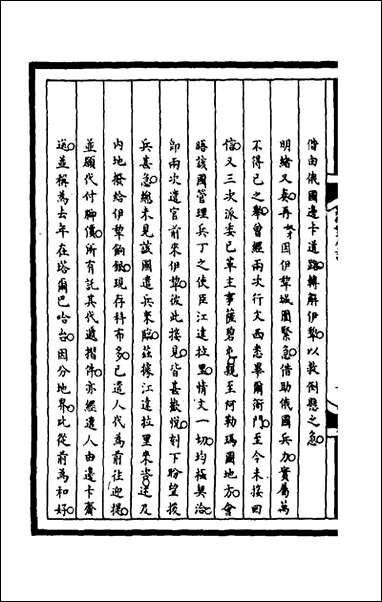 借由俄國邊卡道路轉解伊犂以救倒懸之急
明緒又奏再奴才因伊犂城圍緊急借助俄國兵力實屬萬
不得已之舉曾經兩次行文西悉畢爾衙門至今未接回
信又三次派委已革主事薩碧屯親至阿勒瑪圖地方會
晤該國管理兵丁之使臣江達拉里情文一切均極與洽
卽兩次遣官前來伊犂彼此接見皆甚歡悅刻下盼望援
兵甚急總未見該國遣兵來臨茲據江達拉里來咨述及
內地撥給伊犂餉銀現存科布多已遣人代為前往迎提
並願代付腳價所有託其代遞摺件亦經遣人由邊卡齎
送並稱為去年在塔爾巴哈台因分地界比從前為和好